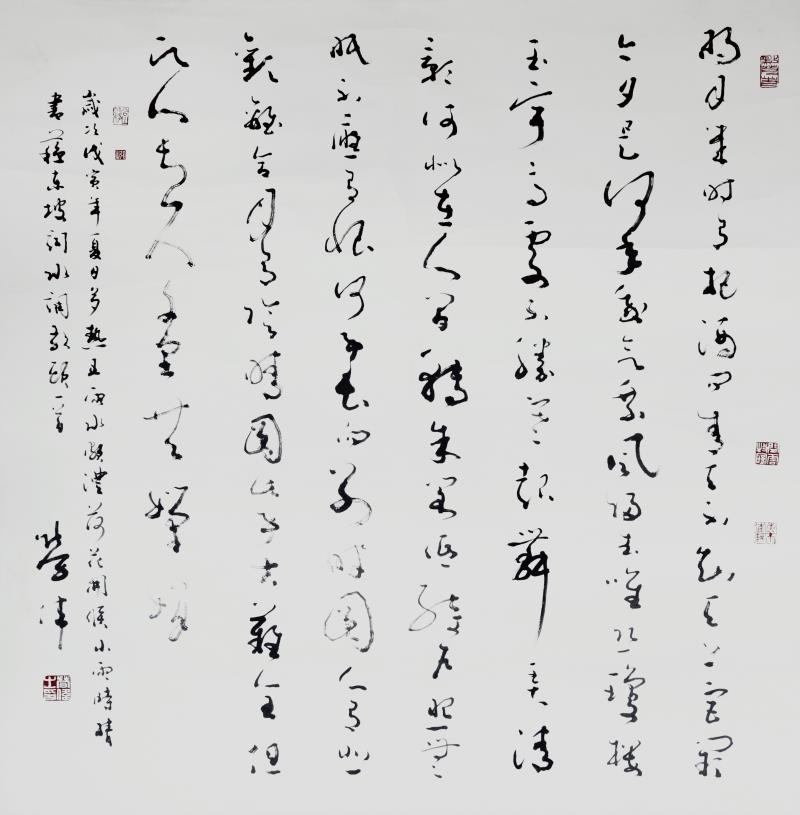 明月幾時有把酒問青天不知天上宮闕
今夕是何年我欲乘風歸去唯恐瓊樓
玉宇高處不勝寒起舞弄清
影何似在人間轉朱閣低綺戶照無
眠不應有恨何事長向別時圓人有悲
歡離合月有陰晴圓此事古難全但
願人長久千里共嬋娟
歲次戊寅年夏日多熱且雨水頗澧荷花開候小雨時晴
書蘇東坡詞水調歌頭一首